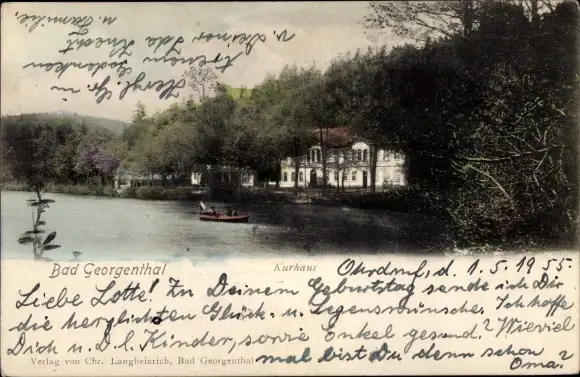 Herzl.
treuem Gedenken
v. Deiner Ida Knecht
u. Familie.
Bad Georgenthal
Kurhaus
Ohrdruf, d. 1.5.1955.
Liebe Lotte! Zu Deinem Geburtstag sende ich Dir
die herzlichsten Glück- u. Segenswünsche. Ich hoffe
Dich u. D. l. Kinder, sowie Onkel gesund? Wieviel
mal bist Du denn schon Oma?
Verlag von Chr. Langheinrich, Bad Georgenthal